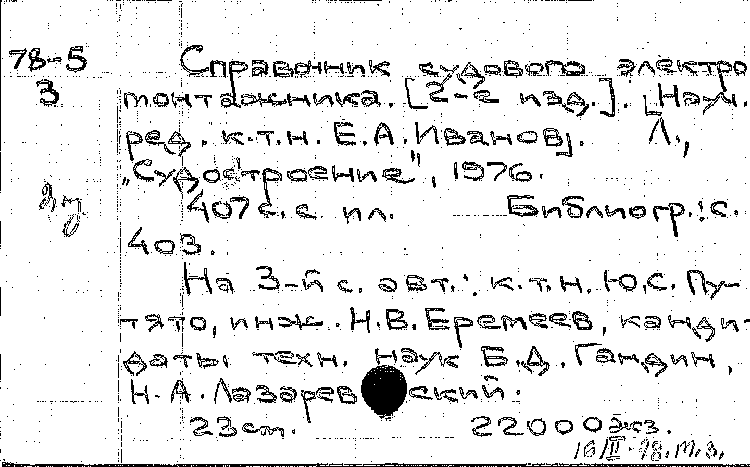 78-5 Справочник судового электро
3 монтажника. [2-е изд.]. [Науч.
ред. к.т.н. Е.А.Иванов]. Л.,
„Судостроение", 1976.
407 с. с ил. Библиогр.: с.
403.
На 3-й с. авт.: к.т.н. Ю.С. Пу-
тято, инж. Н.В.Еремеев, канди-
даты техн. наук Б.Д. Гандин,
Н.А.Лазаревский.
23 см. 22000 экз.
16/III-78.